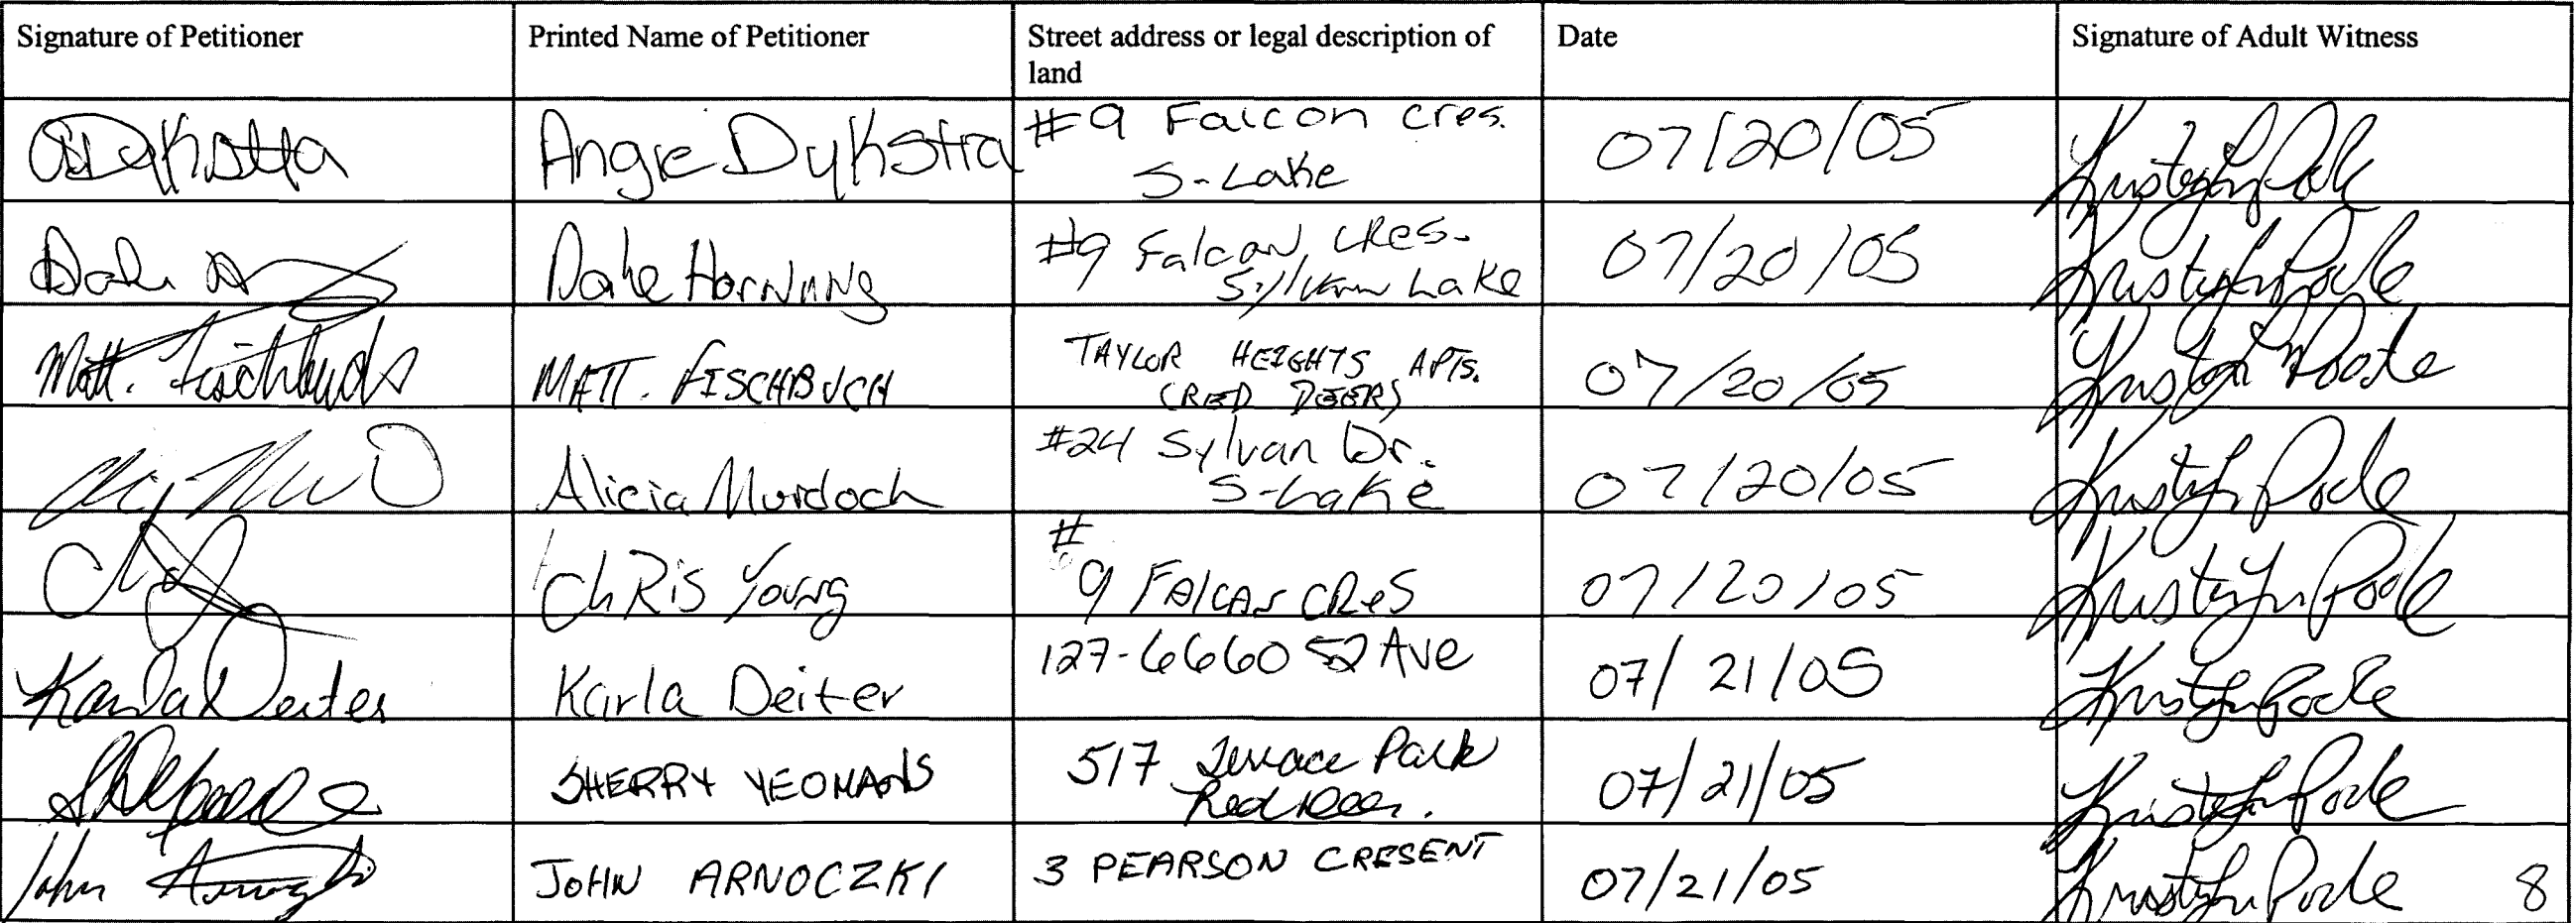 Signature of Petitioner Printed Name of Petitioner Street address or legal description of land Date Signature of Adult Witness
ADykstra Angie Dykstra #9 Falcon Cres. 07/20/05 Kristyln Poole
S-Lake
Dale Dale Hornung #9 Falcon Cres. 07/20/05 Kristyln Poole
Sylvan Lake
Matt. Fischbuch MATT. FISCHBUCH TAYLOR HEIGHTS APTS. 07/20/05 Kristyln Poole
(RED DEER)
Alicia Murdoch #24 Sylvan Dr. 07/20/05 Kristyln Poole
S-Lake
#
ChRis Young 9 FALCAN CReS 07/20/05 Kristyln Poole
Karla Deiter Karla Deiter 127-6660 52 Ave 07/21/05 Kristyln Poole
SHERRY YEOMANS 517 Terrace Park 07/21/05 Kristyln Poole
Red Deer.
John Arnoczki JOHN ARNOCZKI 3 PEARSON CRESENT 07/21/05 Kristyln Poole 8